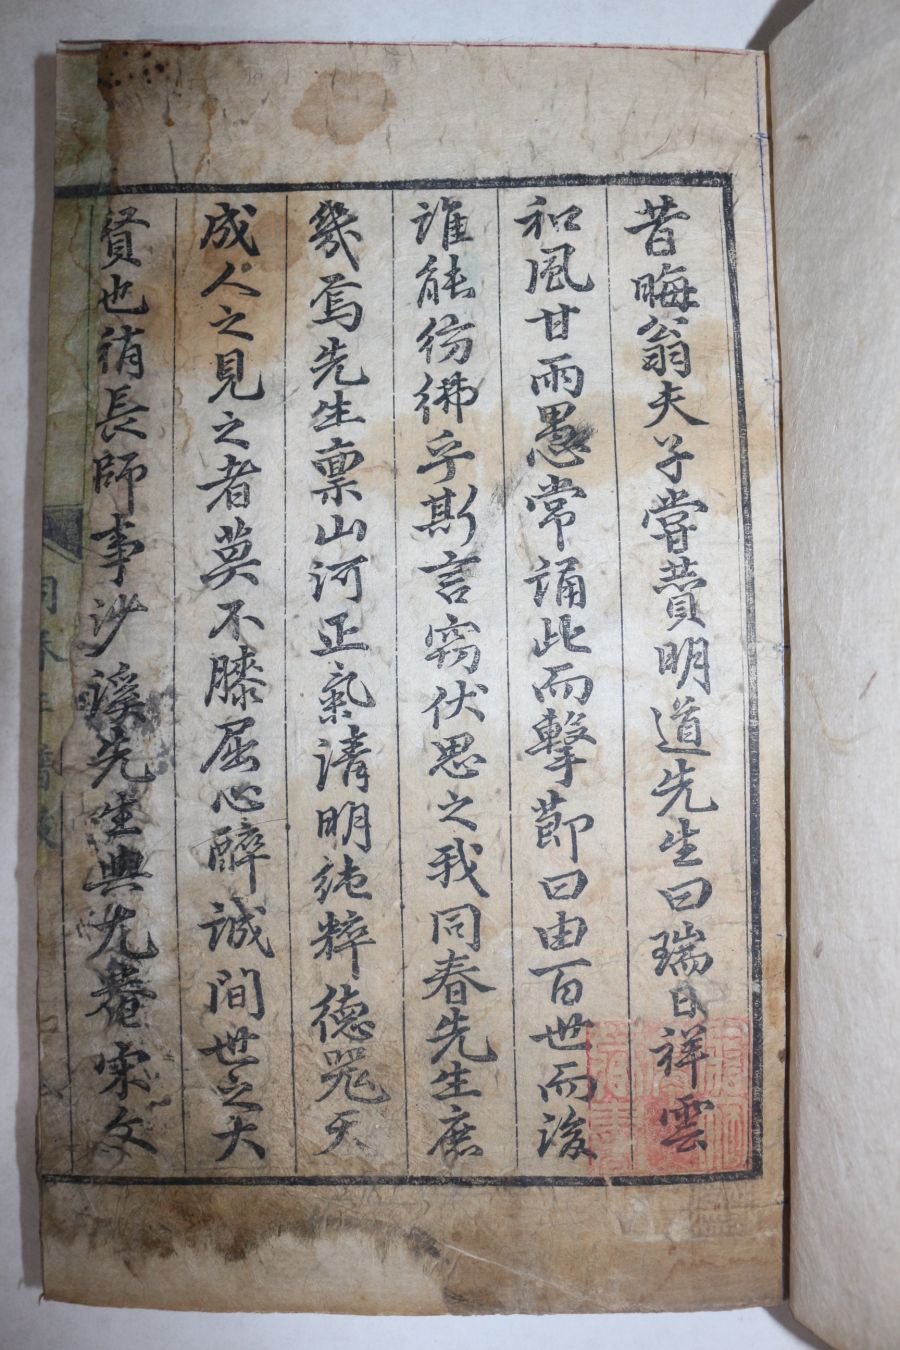 昔晦翁夫子嘗賛明道先生曰瑞日祥雲
和風甘雨愚常誦此而擊節曰由百世而後
誰能彷彿乎斯言窃伏思之我同春先生庶
幾焉先生禀山河正氣清明純粹德器天
成人之見之者莫不膝屈心醉誠間世之大
賢也稍長師事沙溪先生與尤菴宋文
同春